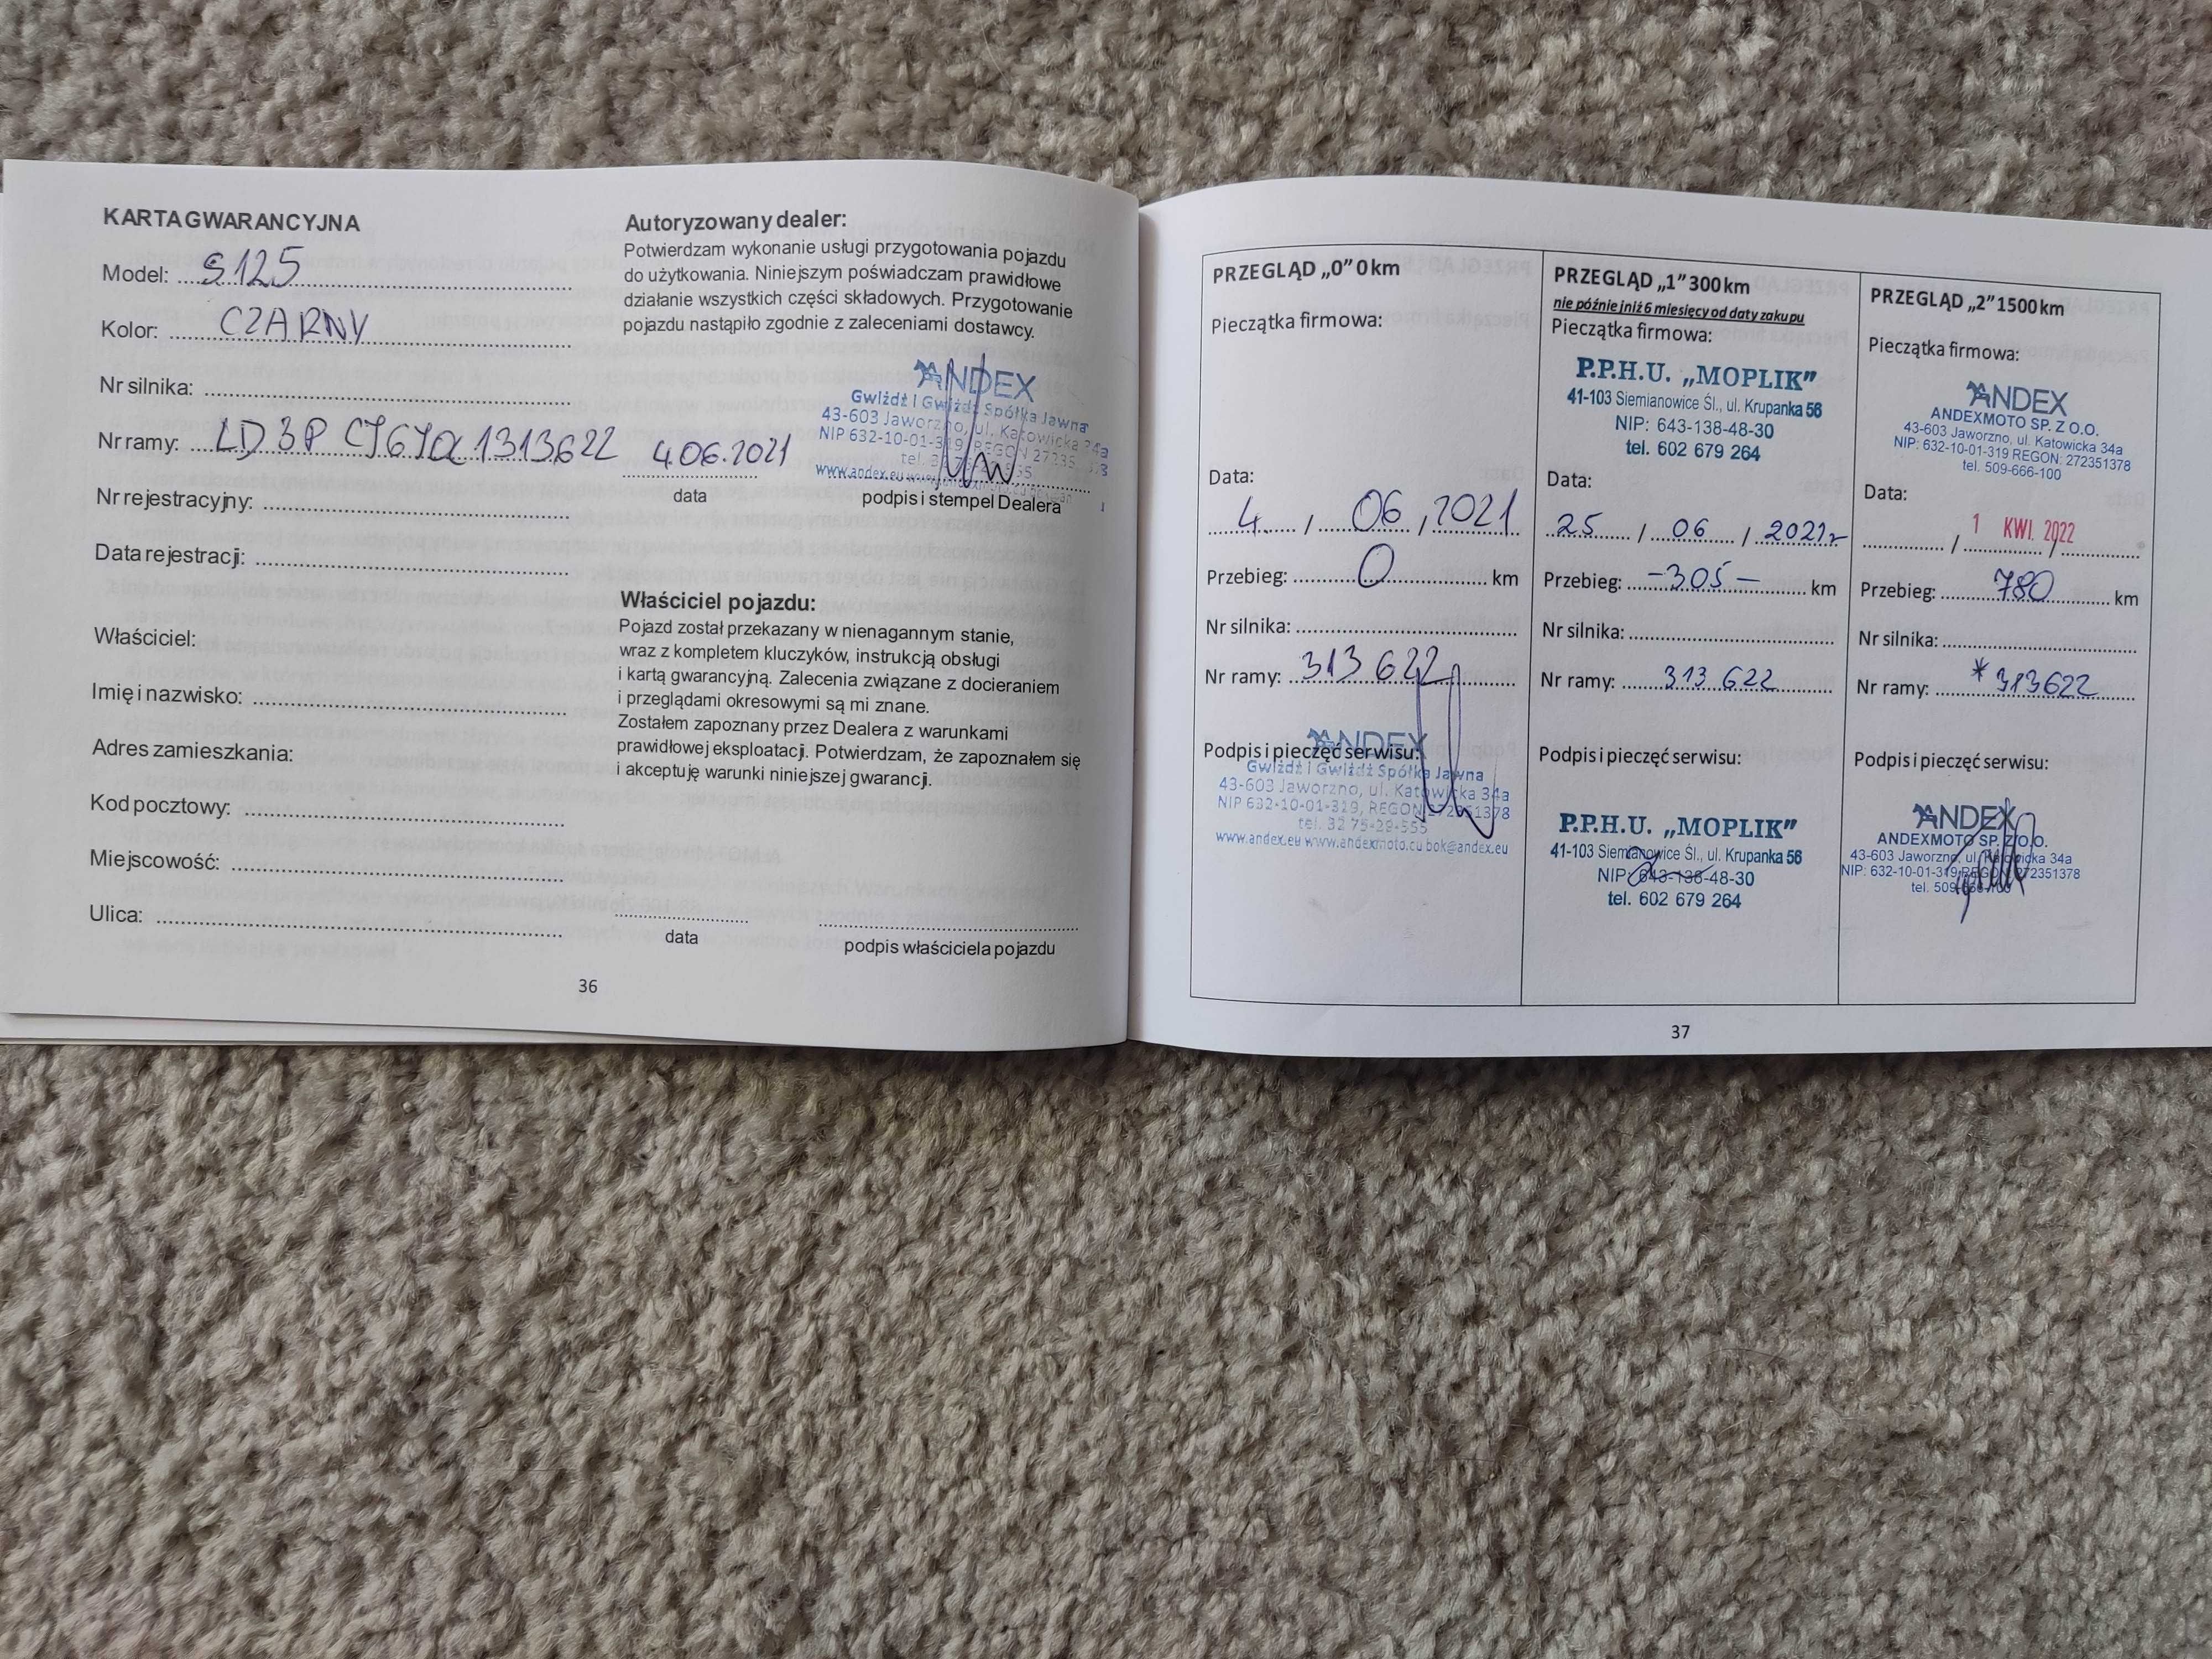 KARTA GWARANCYJNA
Model: S125
Kolor: CZARNY
Nr silnika:
Nr ramy: LD3P
Nr rejestracyjny:
Data rejestracji:
Właściciel:
Imię i nazwisko:
Adres zamieszkania:
Kod pocztowy:
Miejscowość:
Ulica:
Autoryzowany dealer:
Potwierdzam wykonanie usługi przygotowania pojazdu
do użytkowania. Niniejszym poświadczam prawidłowe
działanie wszystkich części składowych. Przygotowanie
pojazdu nastąpiło zgodnie z zaleceniami dostawcy.
ANDEX
Gwiżdż i Gwiżdż Spółka Jawna
43-603 Jaworzno, ul. Katowicka 34a
NIP 632-10-01-319, REGON
tel.
www.andex.eu
4.06.2021
data
podpis i stempel Dealera
Właściciel pojazdu:
Pojazd został przekazany w nienagannym stanie,
wraz z kompletem kluczyków, instrukcją obsługi
i kartą gwarancyjną. Zalecenia związane z docieraniem
i przeglądami okresowymi są mi znane.
Zostałem zapoznany przez Dealera z warunkami
prawidłowej eksploatacji. Potwierdzam, że zapoznałem się
i akceptuję warunki niniejszej gwarancji.
data
podpis właściciela pojazdu
36
PRZEGLĄD „0" 0 km
Pieczątka firmowa:
Data:
4 / 06 / 2021
Przebieg: 0 km
Nr silnika:
Nr ramy: 313622
Podpis i pieczęć serwisu:
ANDEX
Gwiżdż i Gwiżdż Spółka Jawna
43-603 Jaworzno, ul. Katowicka 34a
NIP 632-10-01-319, REGON 272351378
tel. 32 75-29-555
www.andex.eu www.andexmoto.eu bok@andex.eu
PRZEGLĄD „1" 300 km
nie później niż 6 miesięcy od daty zakupu
Pieczątka firmowa:
P.P.H.U. „MOPLIK"
41-103 Siemianowice Śl., ul. Krupanka 56
NIP: 643-138-48-30
tel. 602 679 264
Data:
25 / 06 / 2021r
Przebieg: -305- km
Nr silnika:
Nr ramy: 313 622
Podpis i pieczęć serwisu:
P.P.H.U. „MOPLIK"
41-103 Siemianowice Śl., ul. Krupanka 56
NIP: 643-138-48-30
tel. 602 679 264
PRZEGLĄD „2" 1500 km
Pieczątka firmowa:
ANDEX
ANDEXMOTO SP. Z O.O.
43-603 Jaworzno, ul. Katowicka 34a
NIP: 632-10-01-319 REGON: 272351378
tel. 509-666-100
Data:
1 KWI. 2022
Przebieg: 780 km
Nr silnika:
Nr ramy: *313622
Podpis i pieczęć serwisu:
ANDEX
ANDEXMOTO SP. Z O.O.
43-603 Jaworzno, ul. Katowicka 34a
NIP: 632-10-01-319 REGON: 272351378
tel. 509-666-100
37